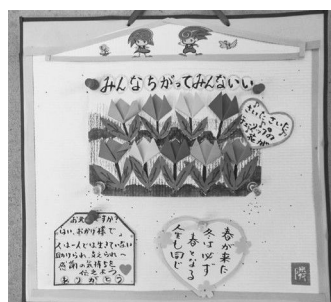 みんなちがってみんないい
さいた
さいた
チューリップの
花が
お元気ですか？
はい、おかげ様で
人は一人では生きていない
助けられ、与えられ
感謝の気持ちを
伝えよう
ありがとう
春が来た
冬は必ず
春となる
人も同じ